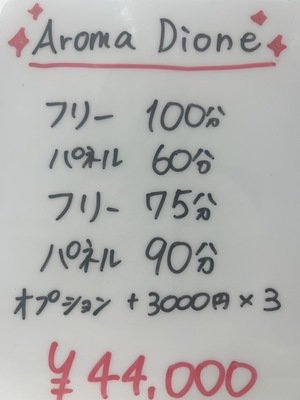 Aroma Dione
フリー 100分
パネル 60分
フリー 75分
パネル 90分
オプション +3000円×3
¥44,000